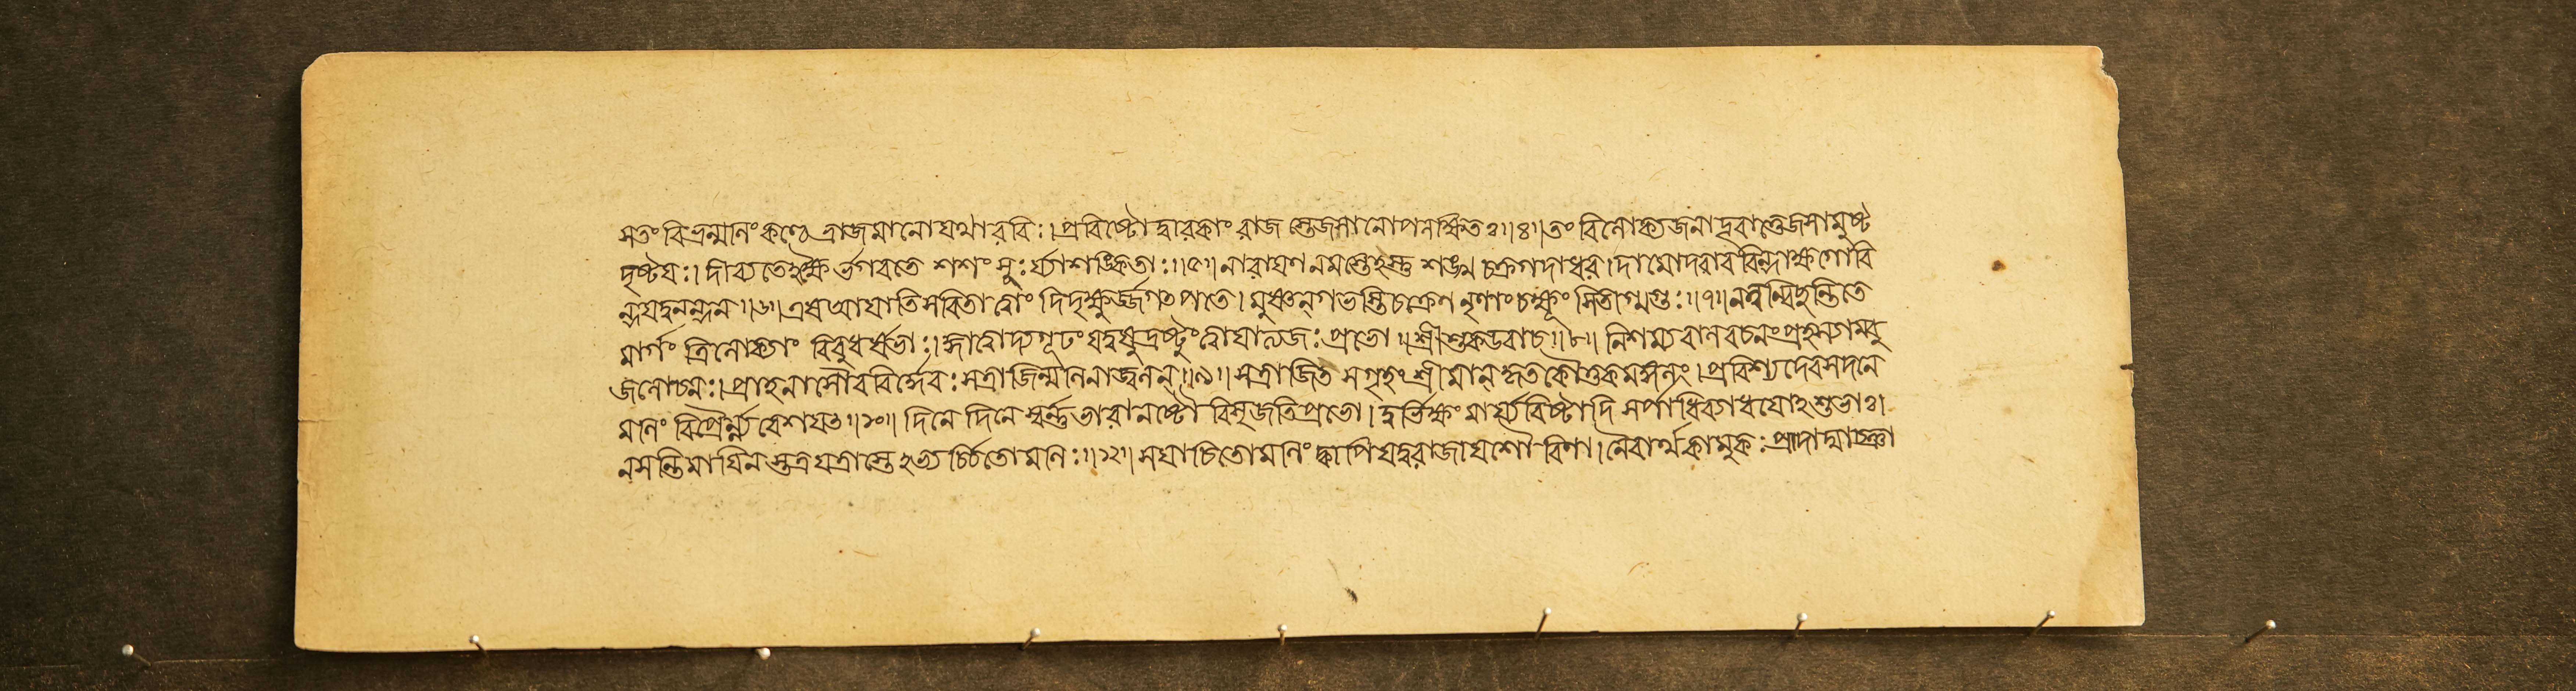 সতং বিভ্রন্মনিংকণ্ঠে ভ্রাজমানোযথারবিঃ।প্রবিষ্টোদ্বারকাং রাজ স্তেজসানোপলক্ষিতঃ॥৪॥তং বিলোক্যজনাদূরাত্তেজসামুষ্ট
দৃষ্টয়ঃ। দীব্যতেঽক্ষৈ র্ভগবতে শশং সুঃ র্য্যাশঙ্কিতাঃ॥৫॥নারায়ণ নমস্তেঽস্তু শঙ্খ চক্রগদাধর।দামোদরারবিন্দাক্ষগোবি
ন্দযদুনন্দন॥৬॥এষআয়াতিসবিতাত্বাং দিদৃক্ষুর্জ্জগৎপতে। মুষ্ণন্গভস্তিচক্রেণ নৃণাংচক্ষূং সিতীগ্মগুঃ॥৭॥নন্বন্বিছন্তিতে
মার্গং ত্রিলোক্যাং বিবুধর্ষভাঃ।জ্ঞাত্বাদ্যগূঢং যদুষুদ্রষ্টুংত্বাযাত্যজঃপ্রভো॥শ্রীশুকউবাচ॥৮॥ নিশম্যবালবচনংপ্রহস্যাম্বু
জলোচনঃ।প্রাহনাসৌরবির্দ্দেবঃসত্রাজিন্মনিনাজ্বলন্॥৯॥সত্রাজিত সগৃহংশ্রীমান্কৃতকৌতুকমঙ্গলং।প্রবিশ্যদেবসদনে
মনিং বিপ্রৈর্ন্ন্যবেশয়ৎ॥১০॥ দিনে দিনে স্বর্ন্নভারানষ্টৌ বিসৃজতিপ্রভো। দুর্ভিক্ষং মার্য্যরিষ্টাদি সর্পাধিব্যাধয়োঽশুভাঃ।
নসন্তিমায়িন স্তত্রযত্রাস্তে ঽভ্য র্চ্চিতোমনিঃ॥১১॥ সযাচিতোমনিং ক্বাপিযদুরাজায়শৌ রিণা।নৈবার্থকামুকঃপ্রাদাদ্যাচ্ঞা